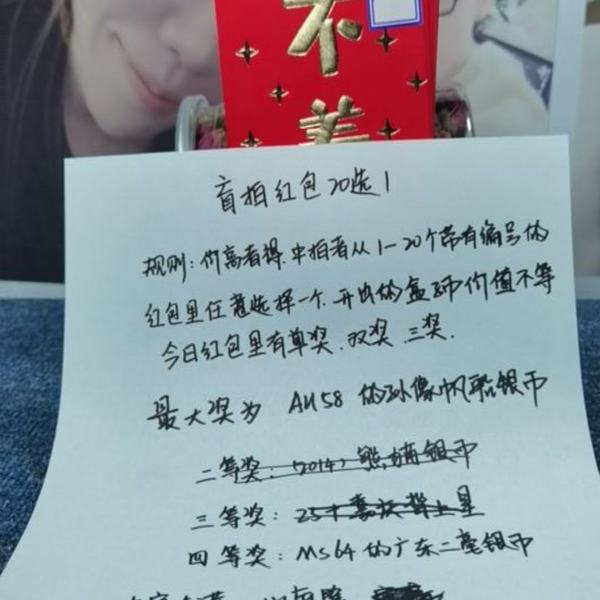 不
善
盲拍红包20选1
规则:价高者得.中拍者从1-20个带有编号的
红包里任意选择一个.开出的盒子币价值不等
今日红包里有单奖.双奖.三奖.
最大奖为 AU58 的孙像帆船银币
二等奖:2014年熊猫银币
三等奖:25
四等奖:MS64的广东二毫银币